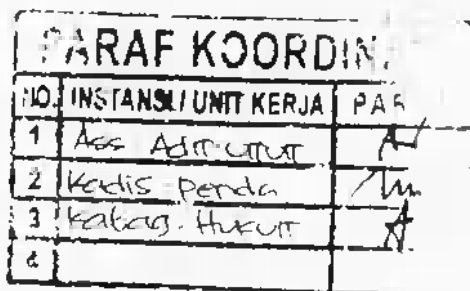 PARAF KOORDIN
NO. INSTANSI / UNIT KERJA PAR
1 Ass Adm. umum
2 Kadis Penda
3 Kabag. Hukum
4